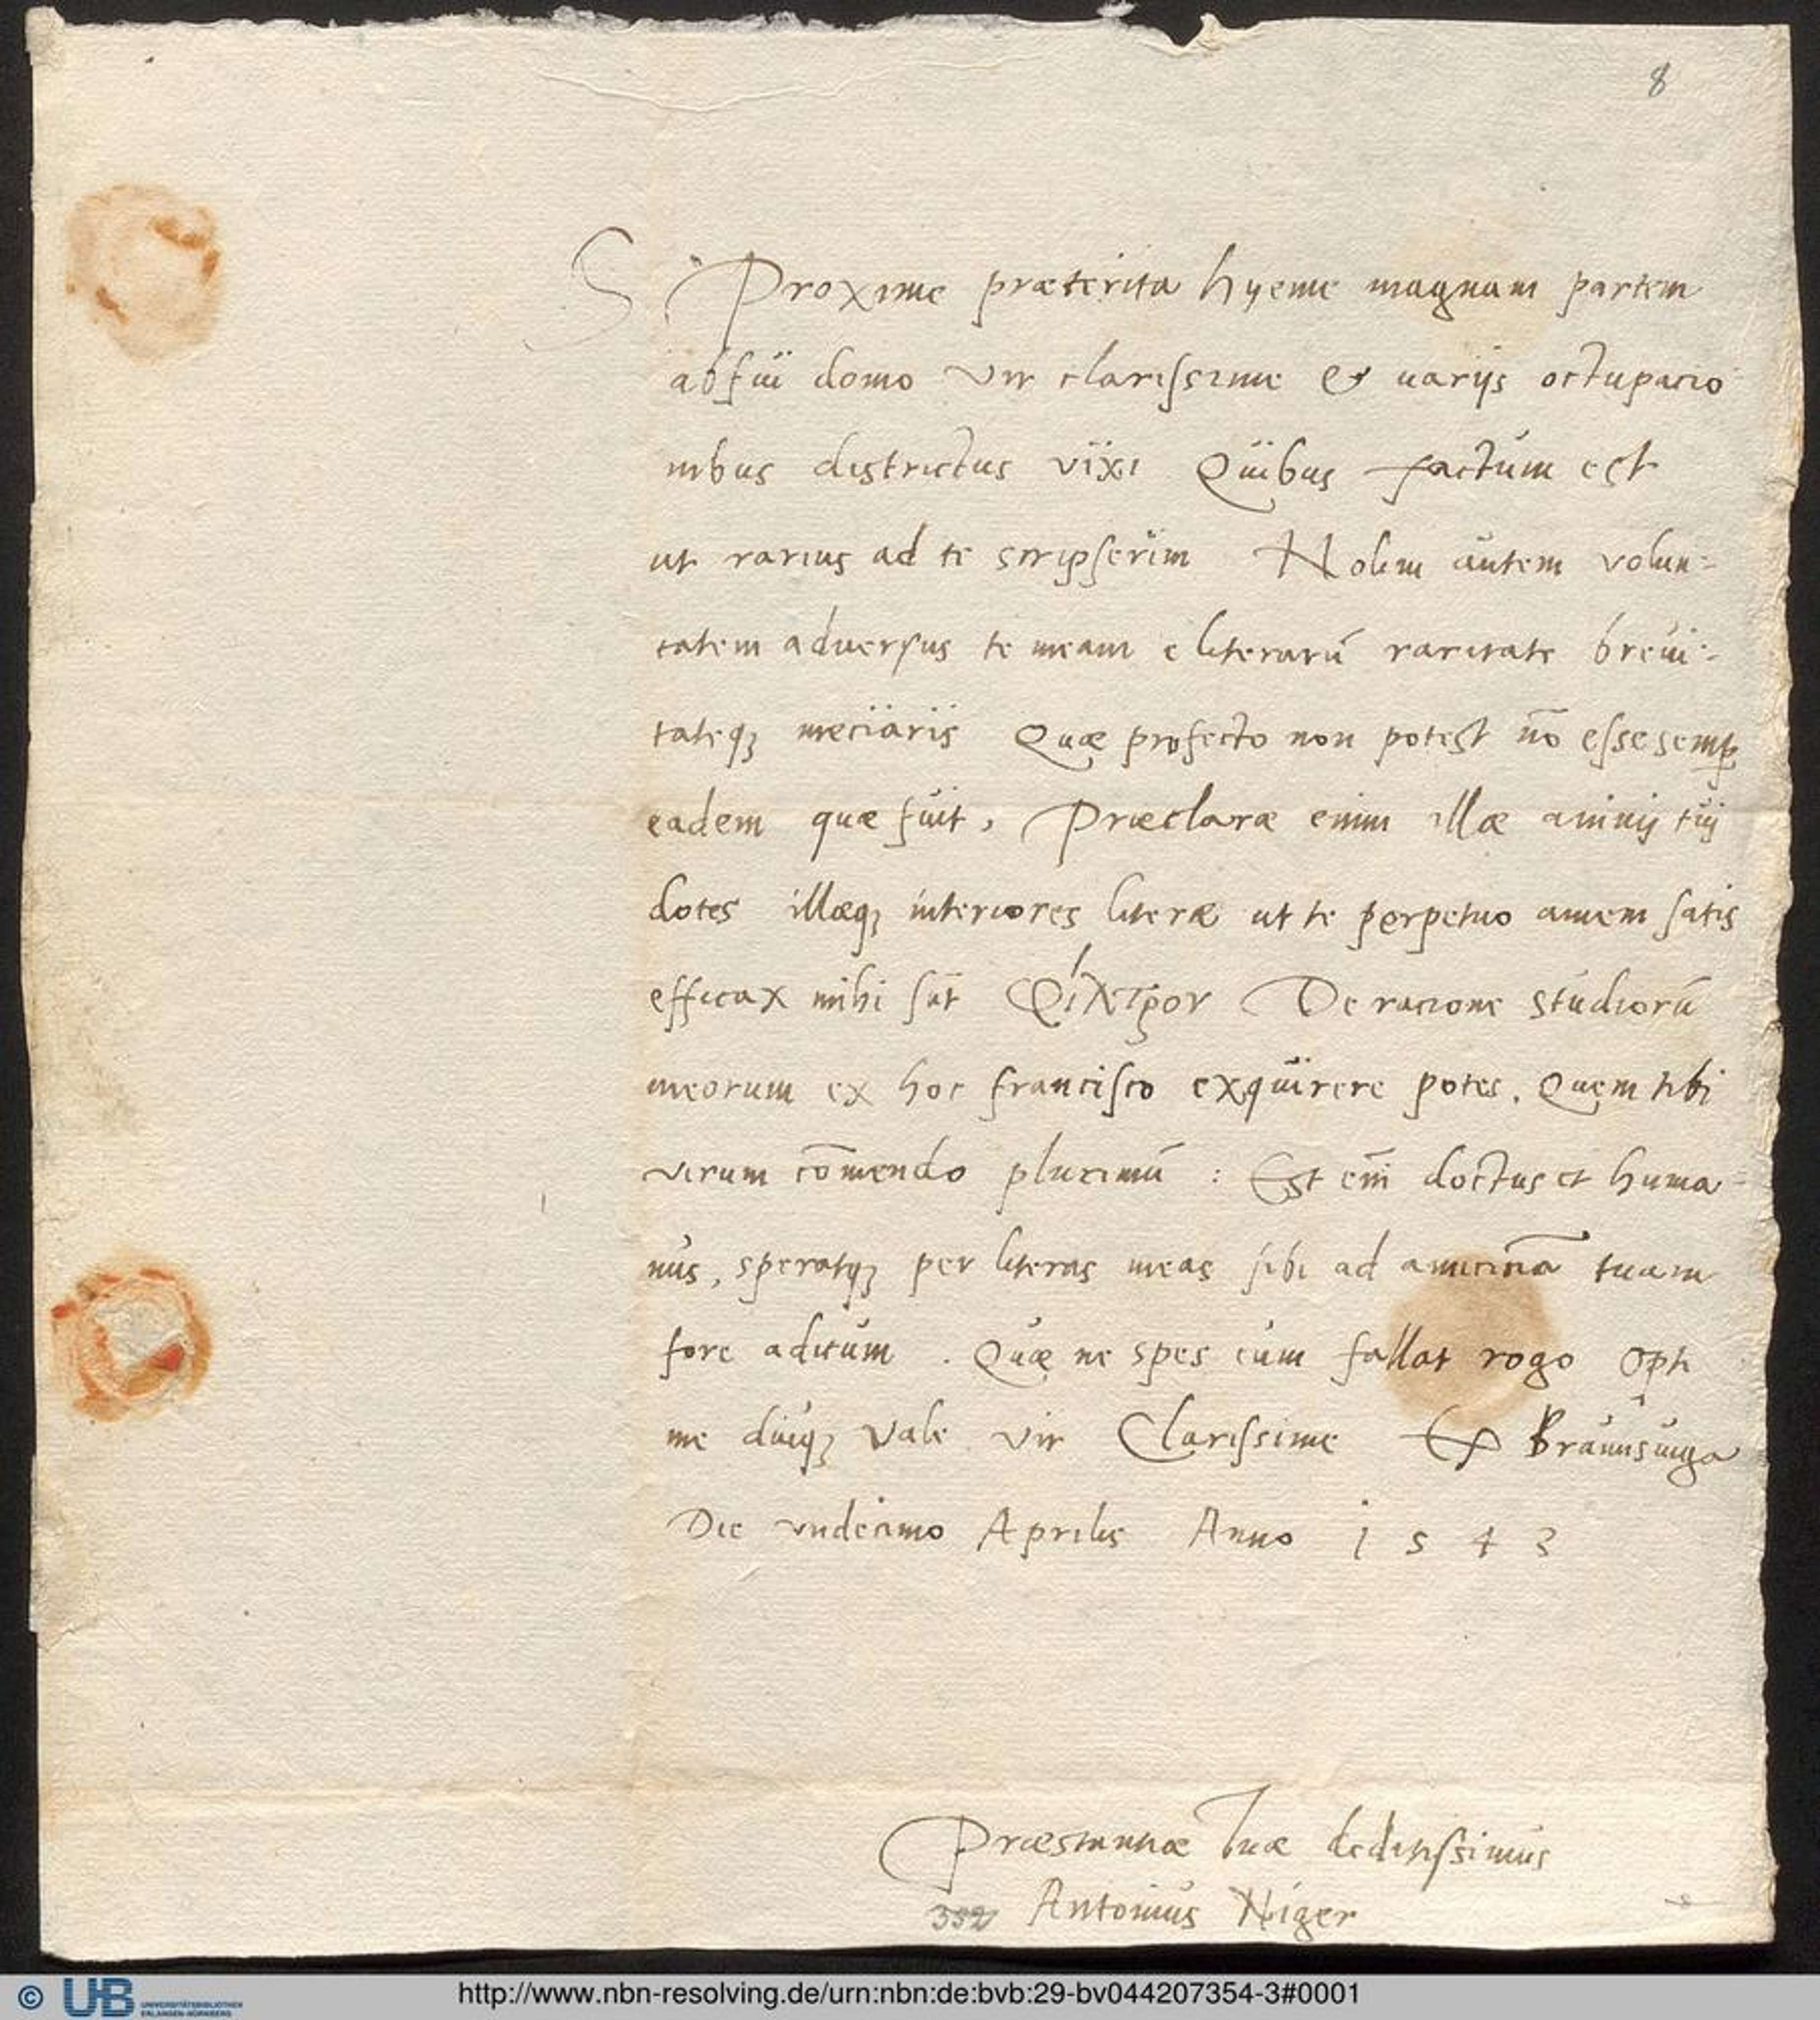 8
S Proxime præterita hyeme magnam partem
abfui domo vir clarissime & uarijs occupacio
nibus districtus vixi Quibus factum est
ut rarius ad te scripserim Nolim autem volun=
tatem aduersus te meam e literarū raritate breui=
tateq; meciaris Quæ profecto non potest nō esse semꝑ
eadem quæ fuit, Præclaræ enim illæ animj tuj
dotes illæq; interiores literæ ut te perpetuo amem satis
efficax mihi sūt φίλτρον De racione studiorū
meorum ex hoc francisco exquirere potes. Quem tibi
virum cōmendo plurimū : Est em̄ doctus et huma=
nus, speratq; per literas meas sibi ad amiciciā tuam
fore aditum . Quæ ne spes eum fallat rogo Opti
me diuq; vale vir Clarissime Ex Braunsuiga
Die vndecimo Aprilis Anno 1 5 4 3
Præstantiæ tuæ deditissimus
332 Antonius Niger
© UB UNIVERSITÄTSBIBLIOTHEK
ERLANGEN-NÜRNBERG
http://www.nbn-resolving.de/urn:nbn:de:bvb:29-bv044207354-3#0001